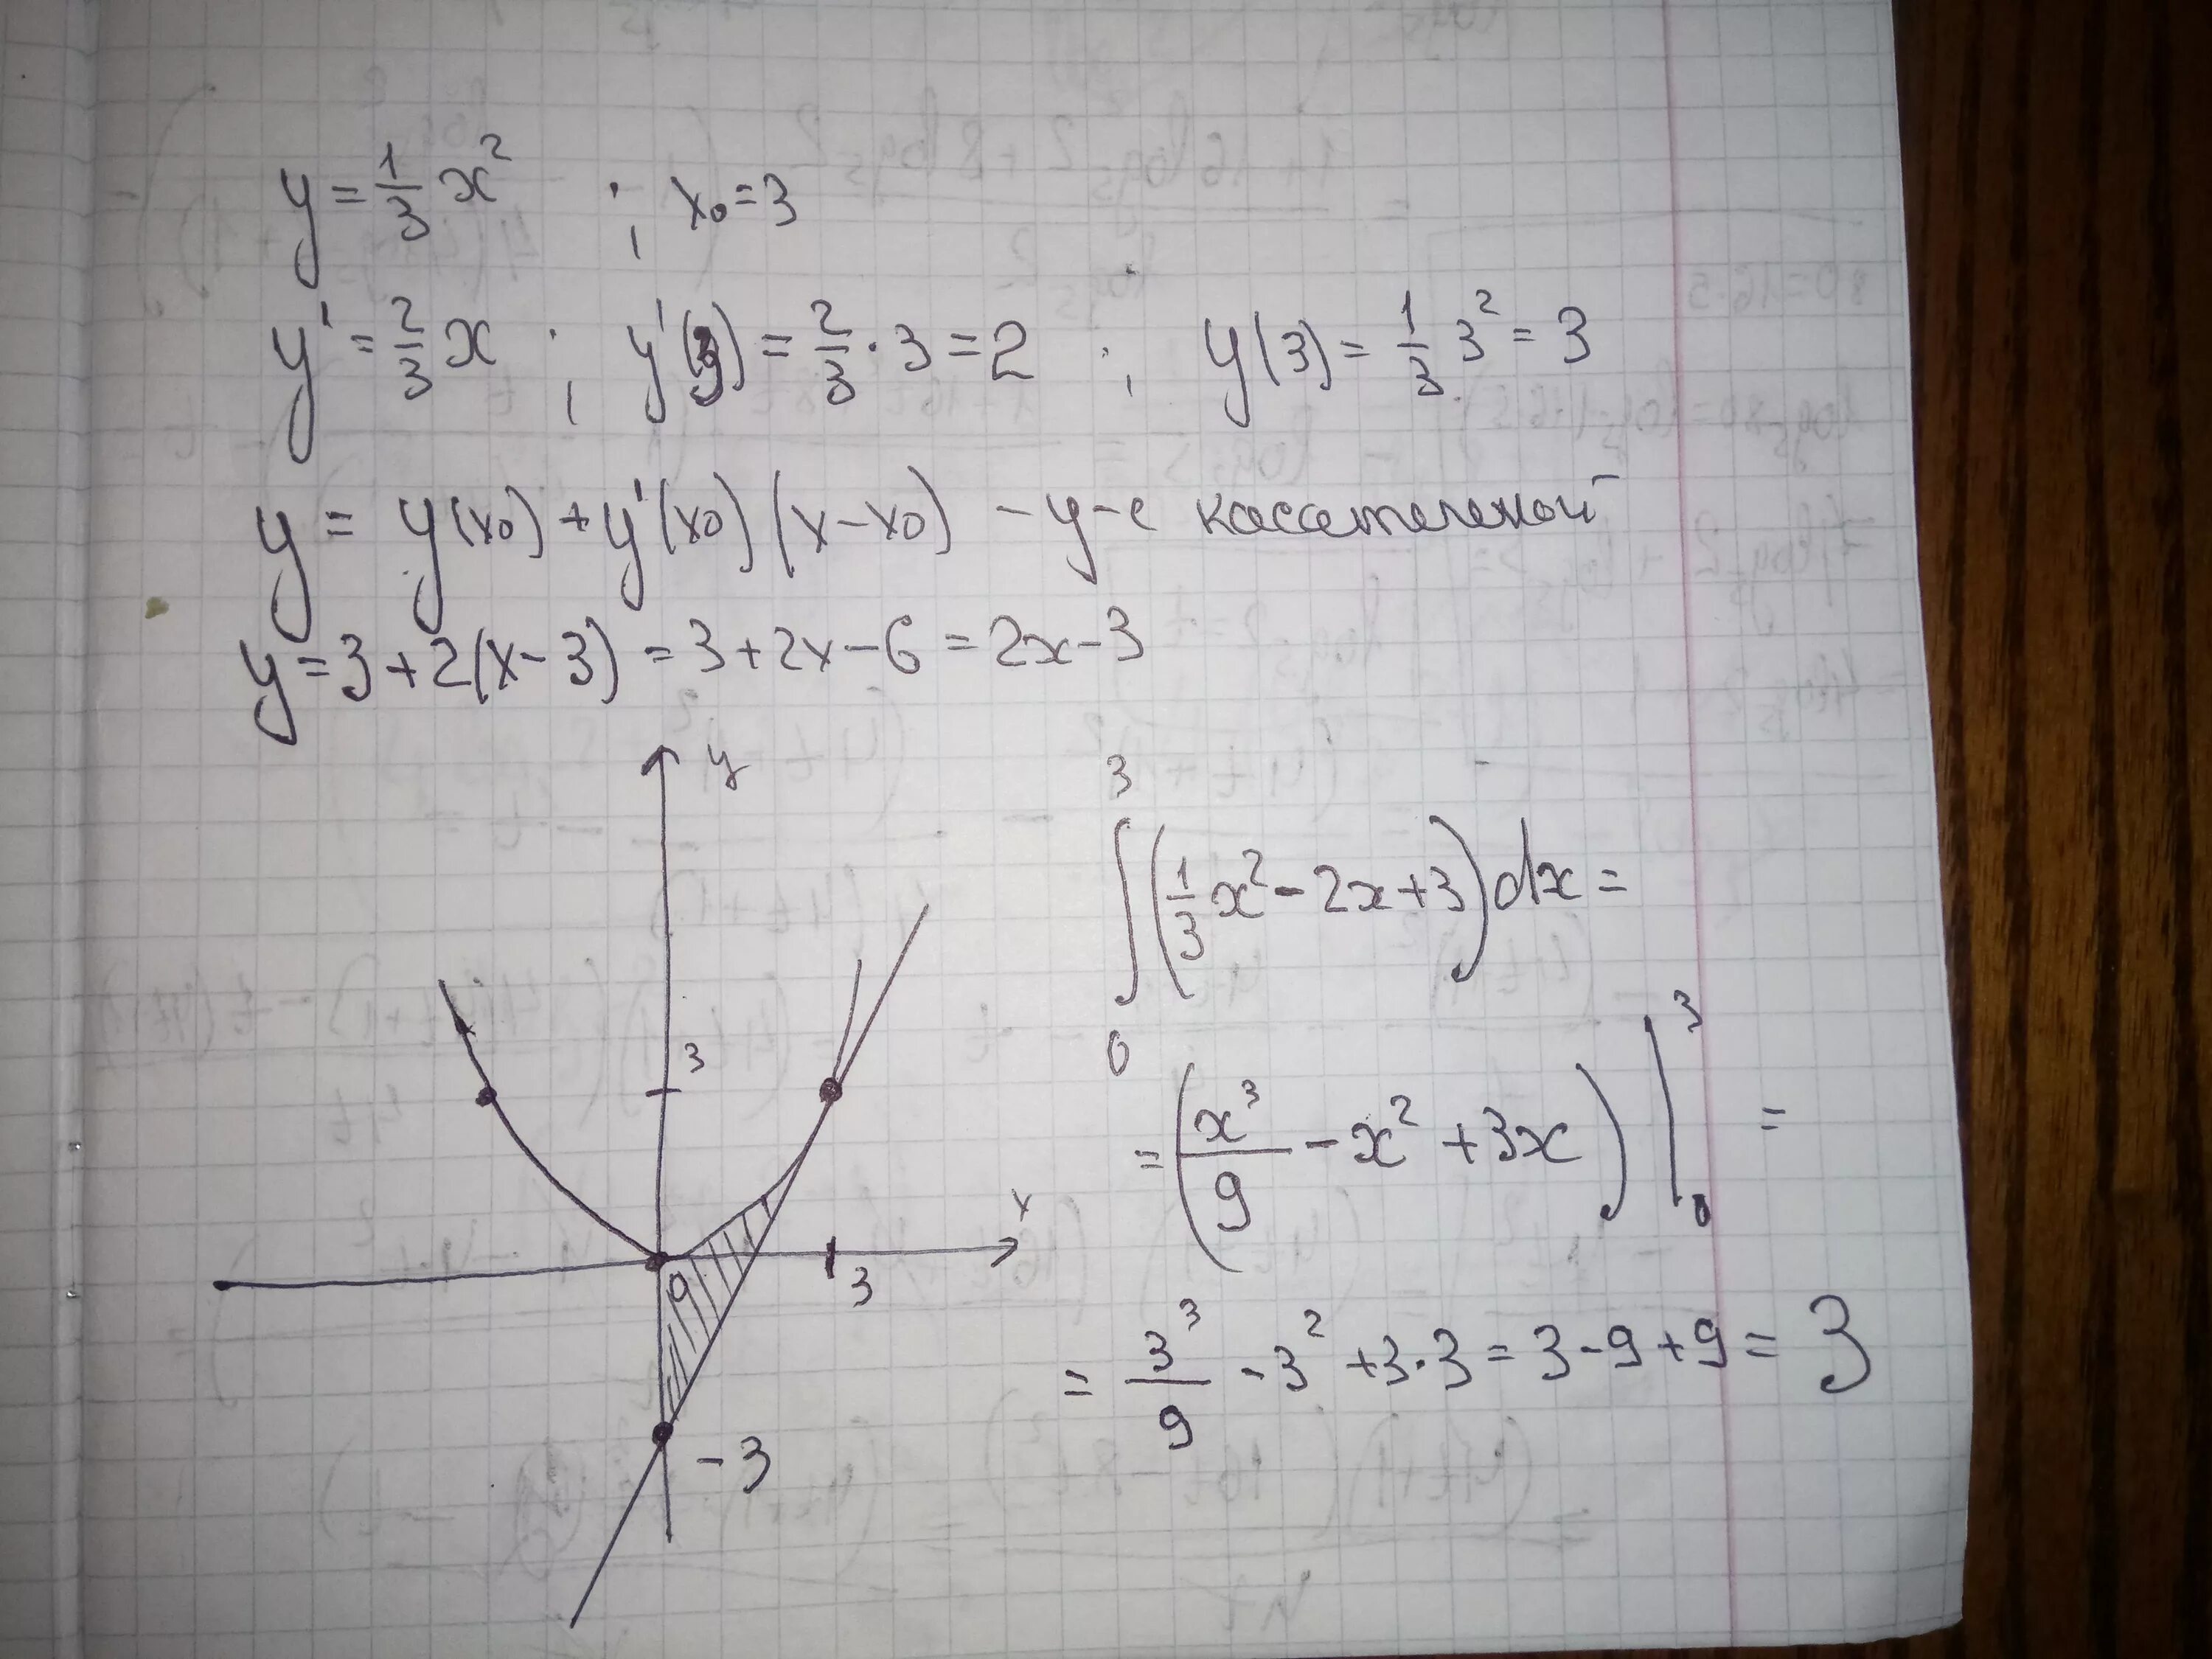 y = 1/3 x² ; x₀ = 3
y' = 2/3 x ; y'(3) = 2/3 · 3 = 2 ; y(3) = 1/3 3² = 3
y = y(x₀) + y'(x₀)(x - x₀) - у-е касательной
y = 3 + 2(x - 3) = 3 + 2x - 6 = 2x - 3
y
3
x
0
3
-3
∫₀³ (1/3 x² - 2x + 3) dx =
= (x³/9 - x² + 3x) |₀³ =
= 3³/9 - 3² + 3·3 = 3 - 9 + 9 = 3